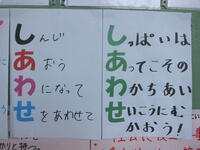 しんじ
あおう
わになって
せをあわせて
しっぱいは
あってこその
わかちあい
せいこうにむ
かおう!